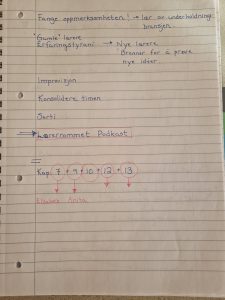 Fange oppmerksomheten! → lær av underholdnings-
bransjen.
"Gamle" lærere
Erfaringstyrani → Nye lærere
Brenner for å prøve
nye ideer.
Improvisasjon
Konsolidere timen
Sorti
→ Lærerrommet Podkast
Kap: 7 + 9 + 10 + 12 + 13
Anita